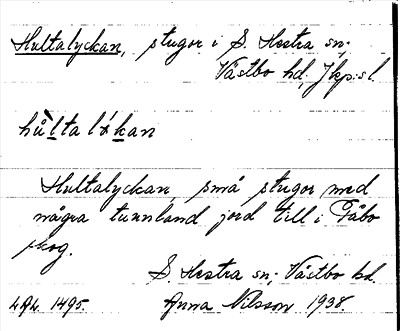 Hultalyckan, stugor i S. Hestra sn;
Västbo hd, Jkp:s l.
hùltalýkan
Hultalyckan, små stugor med
några tunnland jord till i Påbo
skog.
S. Hestra sn; Västbo hd.
Anna Nilsson 1938
1495